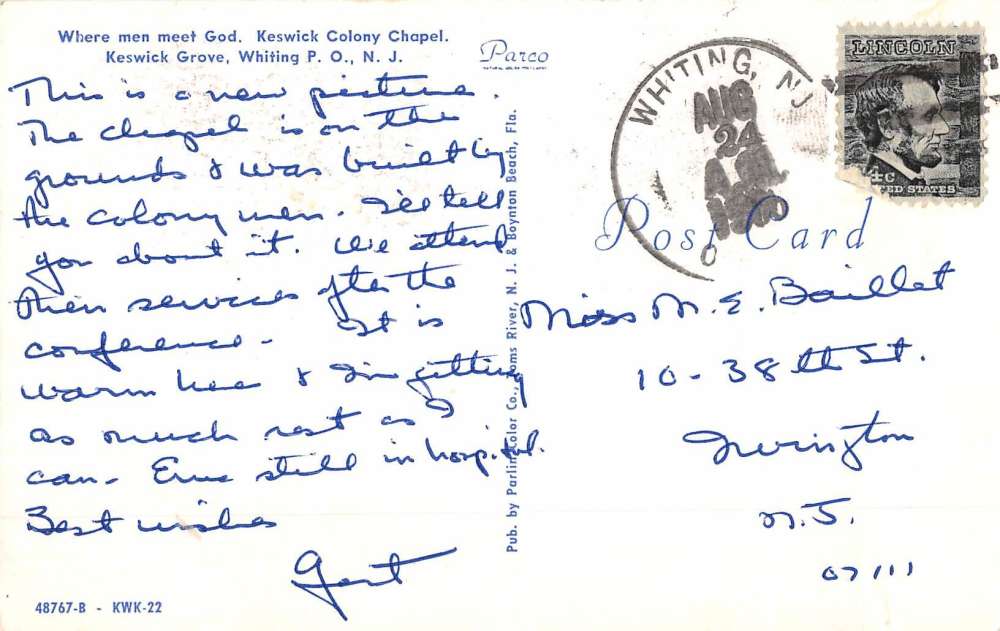 Where men meet God. Keswick Colony Chapel.
Keswick Grove, Whiting P. O., N. J.
Parco
This is a new picture.
The chapel is on the
grounds & was built by
the colony men. I'll tell
you about it. We attend
their services after the
conference - It is
warm here & I'm getting
as much rest as I
can - still in hospital.
Best wishes
Gert
48767-B - KWK-22
Pub. by Parlin Color Co., Toms River, N. J. & Boynton Beach, Fla.
WHITING, NJ
AUG
24
LINCOLN
4c
UNITED STATES
Post Card
Miss M. E. Baillet
10 - 38th St.
Irvington
N.J.
07111